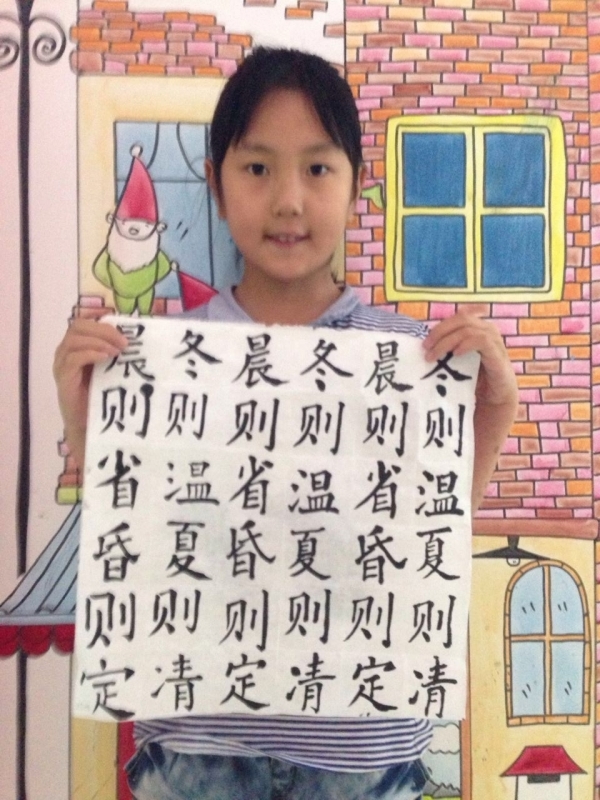 冬则温夏则凊
晨则省昏则定
冬则温夏则凊
晨则省昏则定
冬则温夏则凊
晨则省昏则定